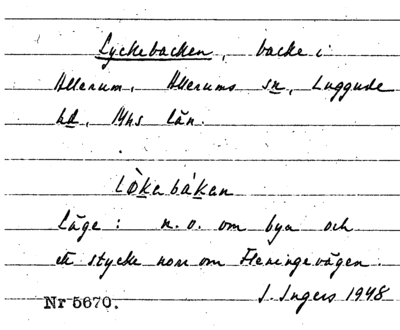 Lyckebacken, backe i
Allerum, Allerums sn, Luggude
hd, Mhs län.
Lø̀keba̍kan
Läge: n.o. om byn och
ett stycke norr om Fleningevägen.
I. Ingers 1948
Nr 5670.